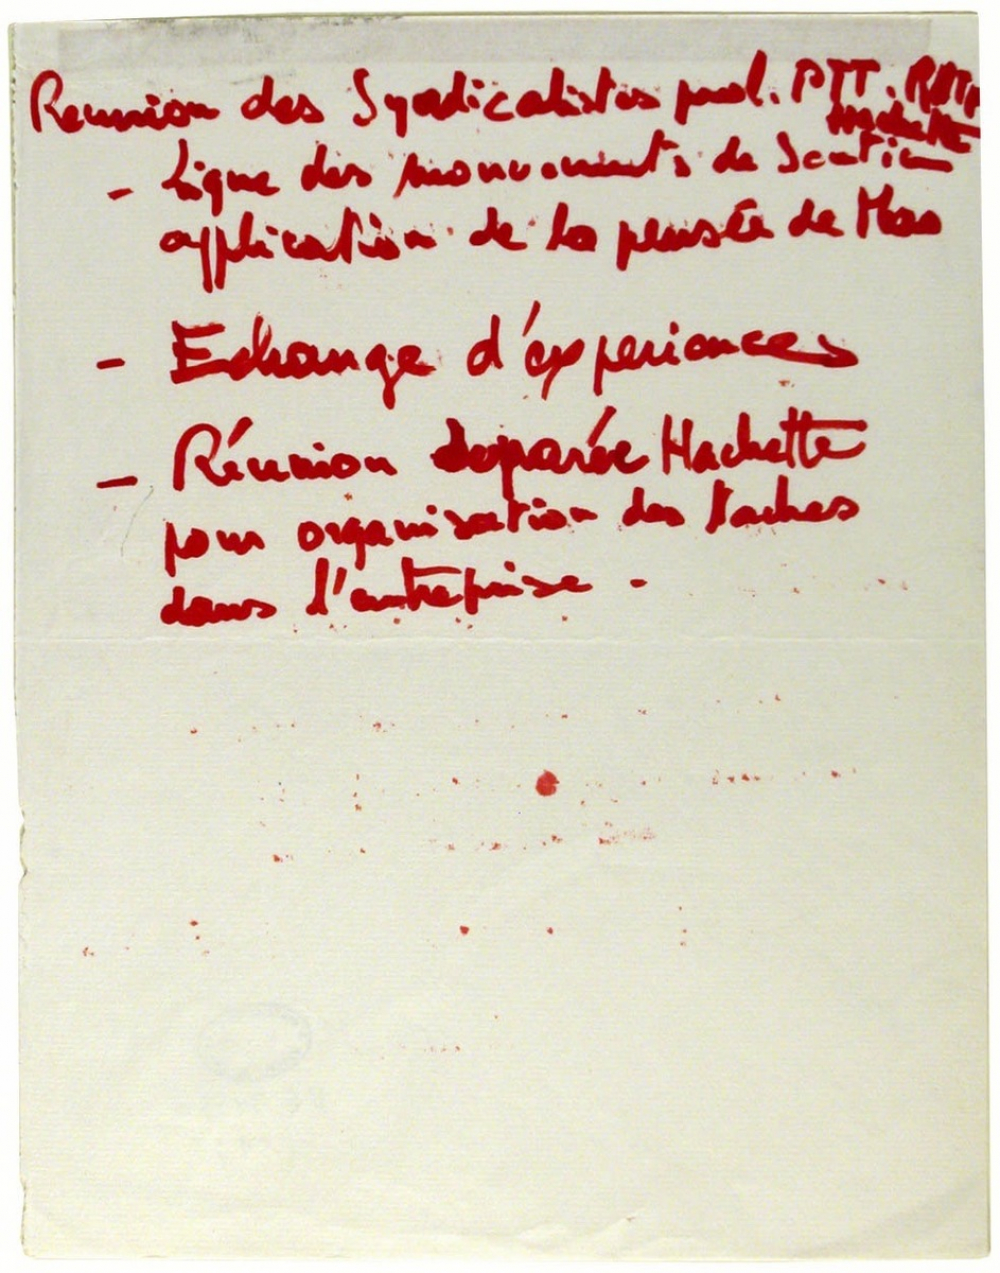 Reunion des Syndicalistes prol. PTT. RATP
Hachette
- Ligne des mouvements de Soutien
application de la pensée de Mao
- Echange d'experiences
- Réunion séparée Hachette
pour organisation des taches
dans l'entreprise -